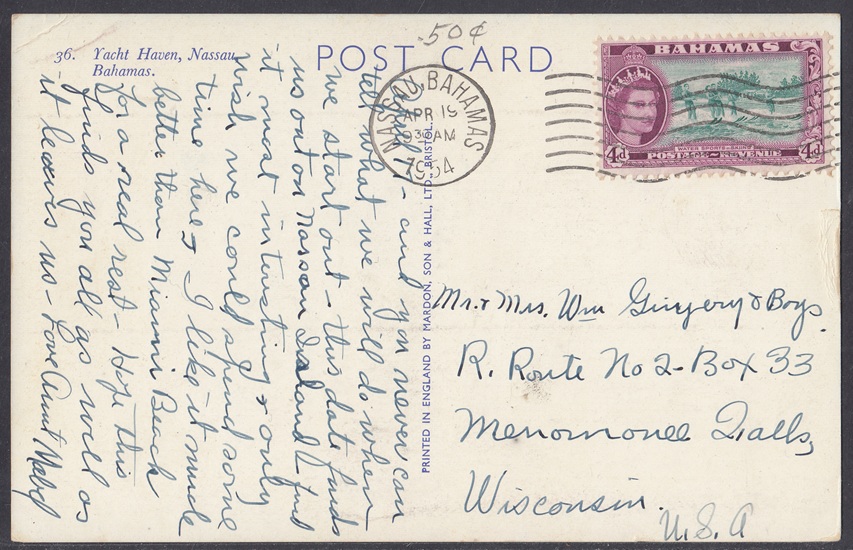 .50¢
36. Yacht Haven, Nassau,
Bahamas.
POST CARD
NASSAU, BAHAMAS
APR 19
930 AM
1954
BAHAMAS
4d
4d
WATER SPORTS - SKIING
POSTAGE REVENUE
PRINTED IN ENGLAND BY MARDON, SON & HALL, LTD., BRISTOL.
- and you never can
tell what we will do when
we start out - this date finds
us out on Nassau Island & find
it most interesting & only
wish we could spend some
time here & I like it much
better than Miami Beach
for a real rest - Hope this
finds you all as well as
it leaves us - Love Aunt Mabel
Mr. & Mrs. Wm Gingery & Boys.
R. Route No 2 - Box 33
Menomonee Falls,
Wisconsin.
U.S.A